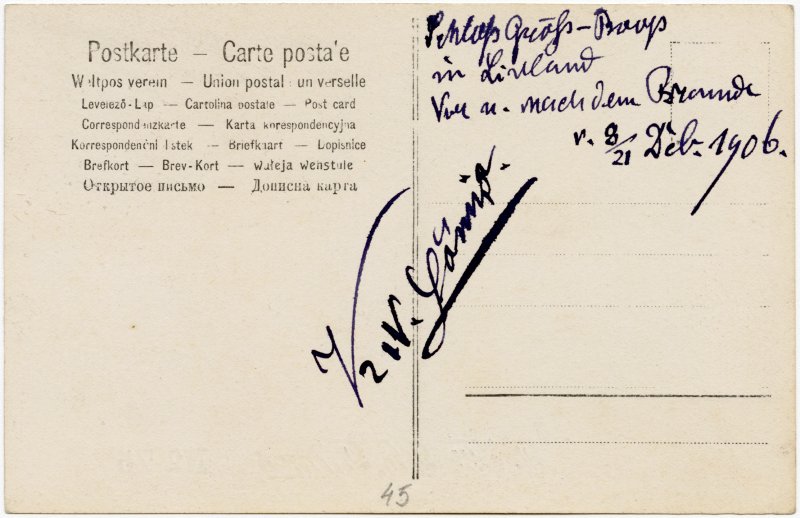 Postkarte — Carte posta'e
Weltpos verein — Union postal un verselle
Levelező-Lap — Cartolina postale — Post card
Correspondenzkarte — Karta korespondencyjna
Korrespondenční lístek — Briefkaart — Lopisnice
Brefkort — Brev-Kort — Wuleja Wenstule
Открытое письмо — Дописна карта
Schloß Groß-Roop
in Livland
Vor u. nach dem Brande
v. 8/21 Dec. 1906.
45